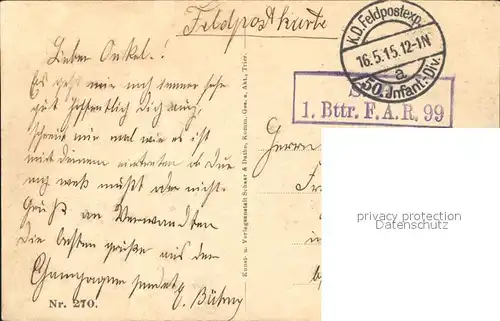 Feldpostkarte
K.D. Feldpostexp.
16.5.15. 12-1N
a
50. Infant.-Div.
1. Bttr. F.A.R. 99
Lieber Onkel!
Es geht mir noch immer sehr
gut hoffentlich Dir auch,
schreibe mir mal wie es ist
mit deinem einrücken ob Du
weg mußt oder nicht.
Gruß an Verwandten
die besten grüße aus der
Champagne sendet
Nr. 270.
Kunst- u. Verlagsanstalt Schaar & Dathe, Komm.-Ges. a. Akt., Trier.
Herrn
privacy protection
oldthing.de